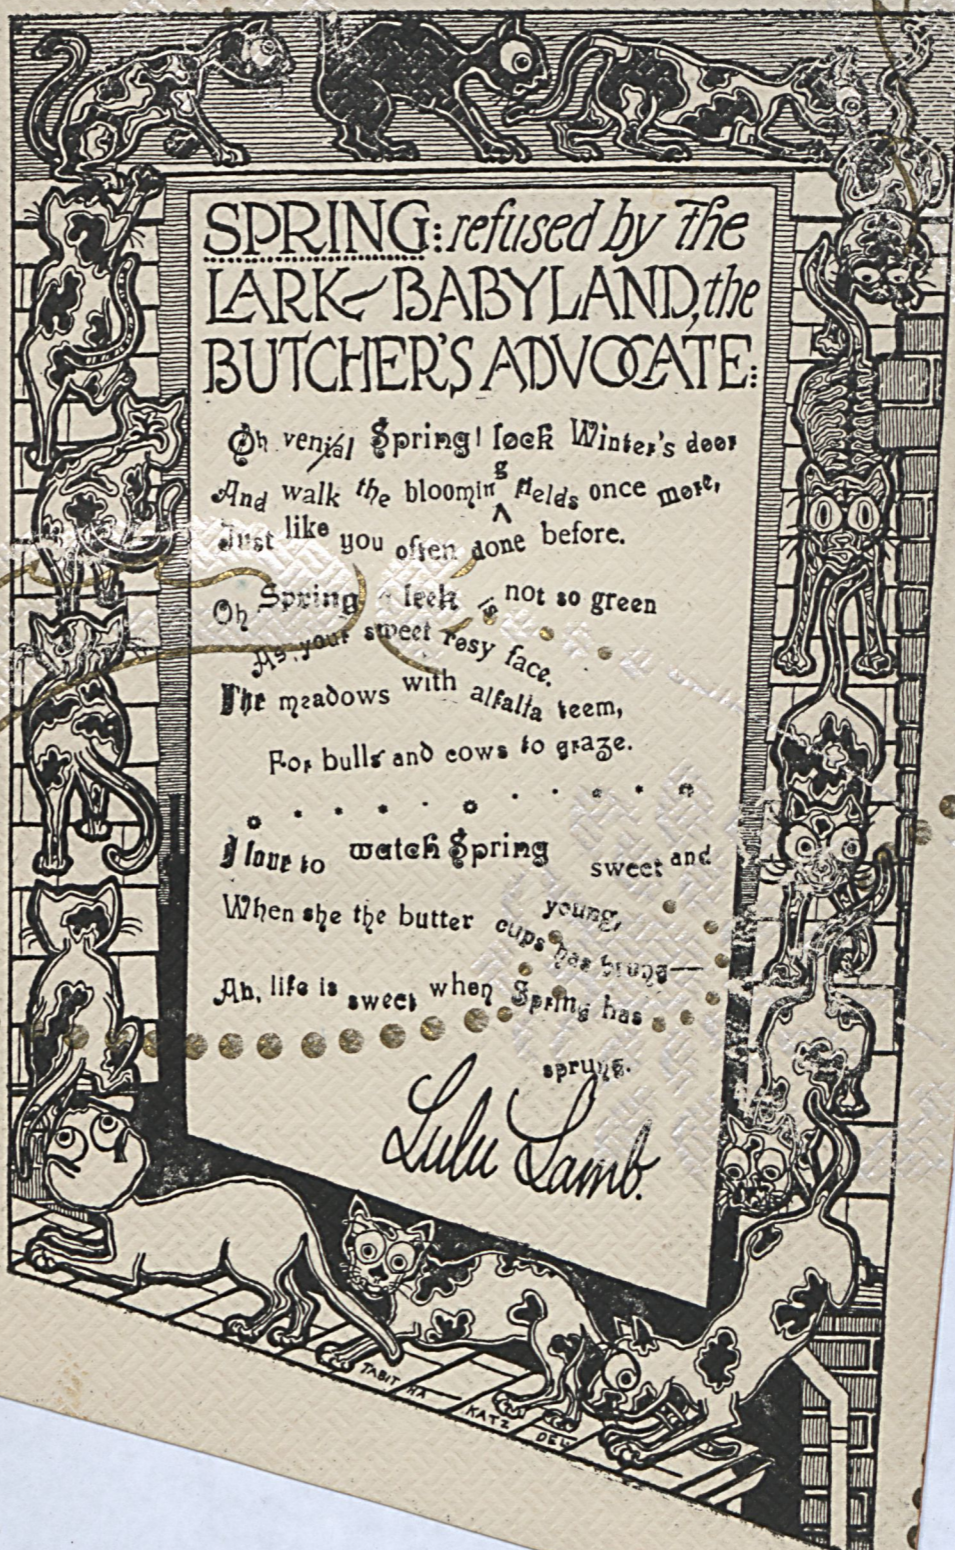 SPRING: refused by the
LARK - BABYLAND, the
BUTCHER'S ADVOCATE:
Oh venial Spring! lock Winter's door
And walk the bloomin fields once more,
g
^
Just like you often done before.
Oh Spring leek is not so green
As your sweet rosy face.
The meadows with alfalfa teem,
For bulls and cows to graze.
I love to watch Spring sweet and
young,
When she the butter cups has brung—
Ah, life is sweet when Spring has
sprung.
Lulu Lamb.
TABITHA
KATZ